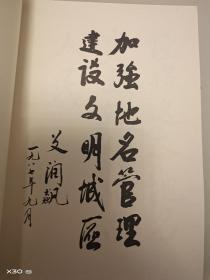 加強地名管理
建设文明城區
艾润飙
一九八七年九月
X30